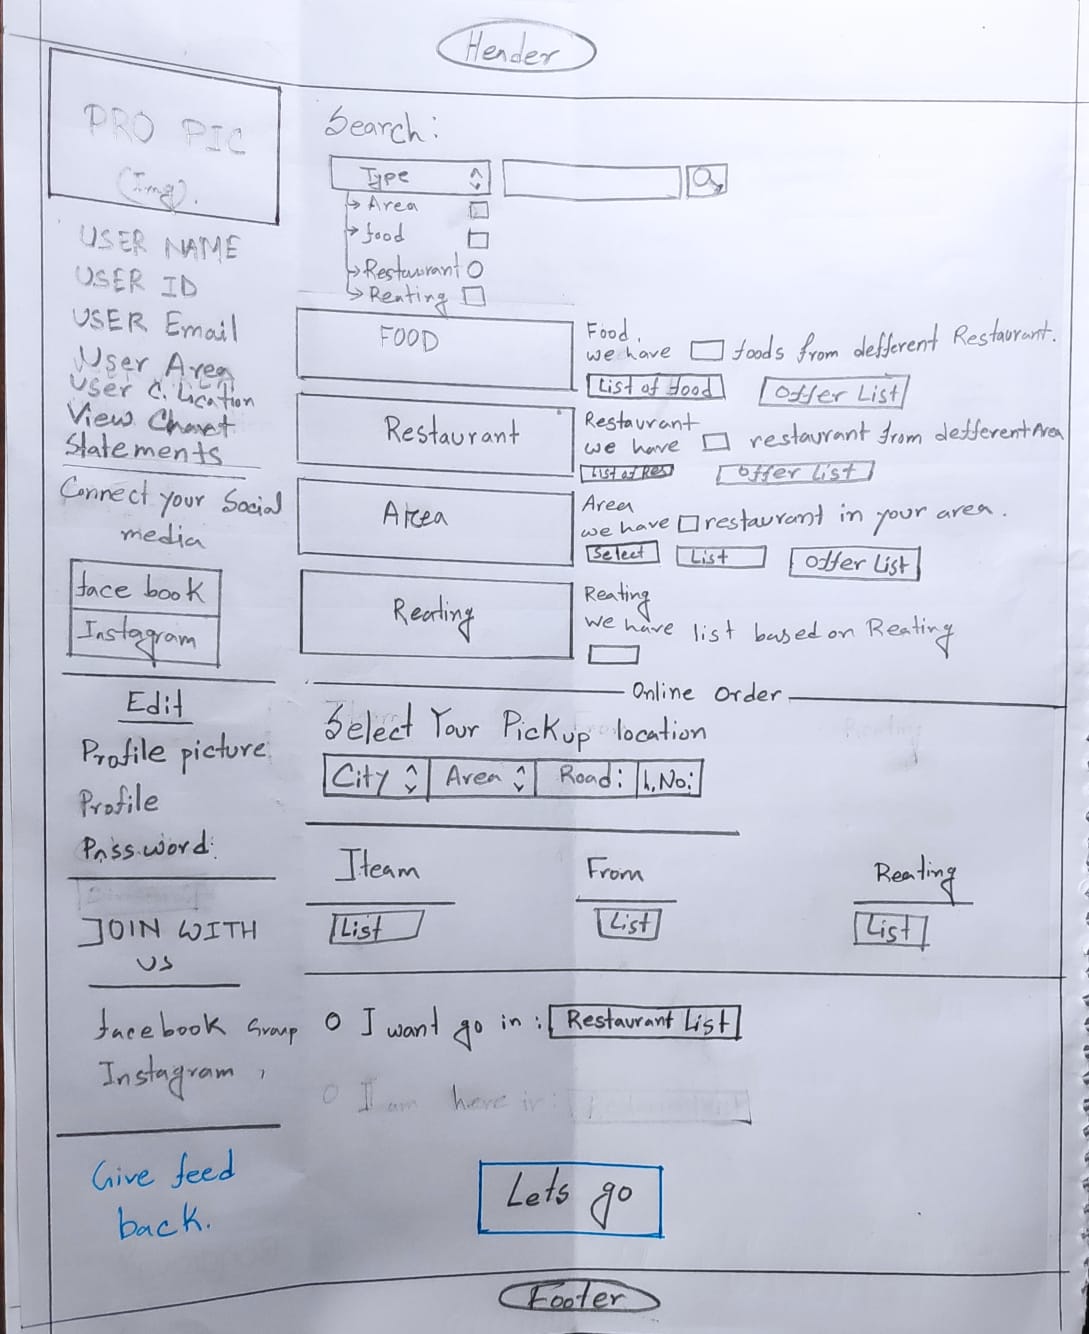 Header
PRO PIC
(Img).
USER NAME
USER ID
USER Email
User Area
User C. Lication
View Chart
Statements
Connect your Social
media
face book
Instagram
Edit
Profile picture
Profile
Password:
JOIN WITH
US
facebook Group
Instagram,
Give feed
back.
Search:
Type
Area
food
Restaurant
Reating
FOOD
Food.
we have foods from defferent Restaurant.
List of food Offer List
Restaurant
Restaurant
we have restaurant from defferent Area
List of Res offer list
Area
Area
we have restaurant in your area.
Select List Offer List
Reating
Reating
we have list based on Reating
Online Order
Select Your Pickup location
City Area Road: h.No:
Iteam From Reating
List List List
I want go in: Restaurant List
I am here in:
Lets go
Footer